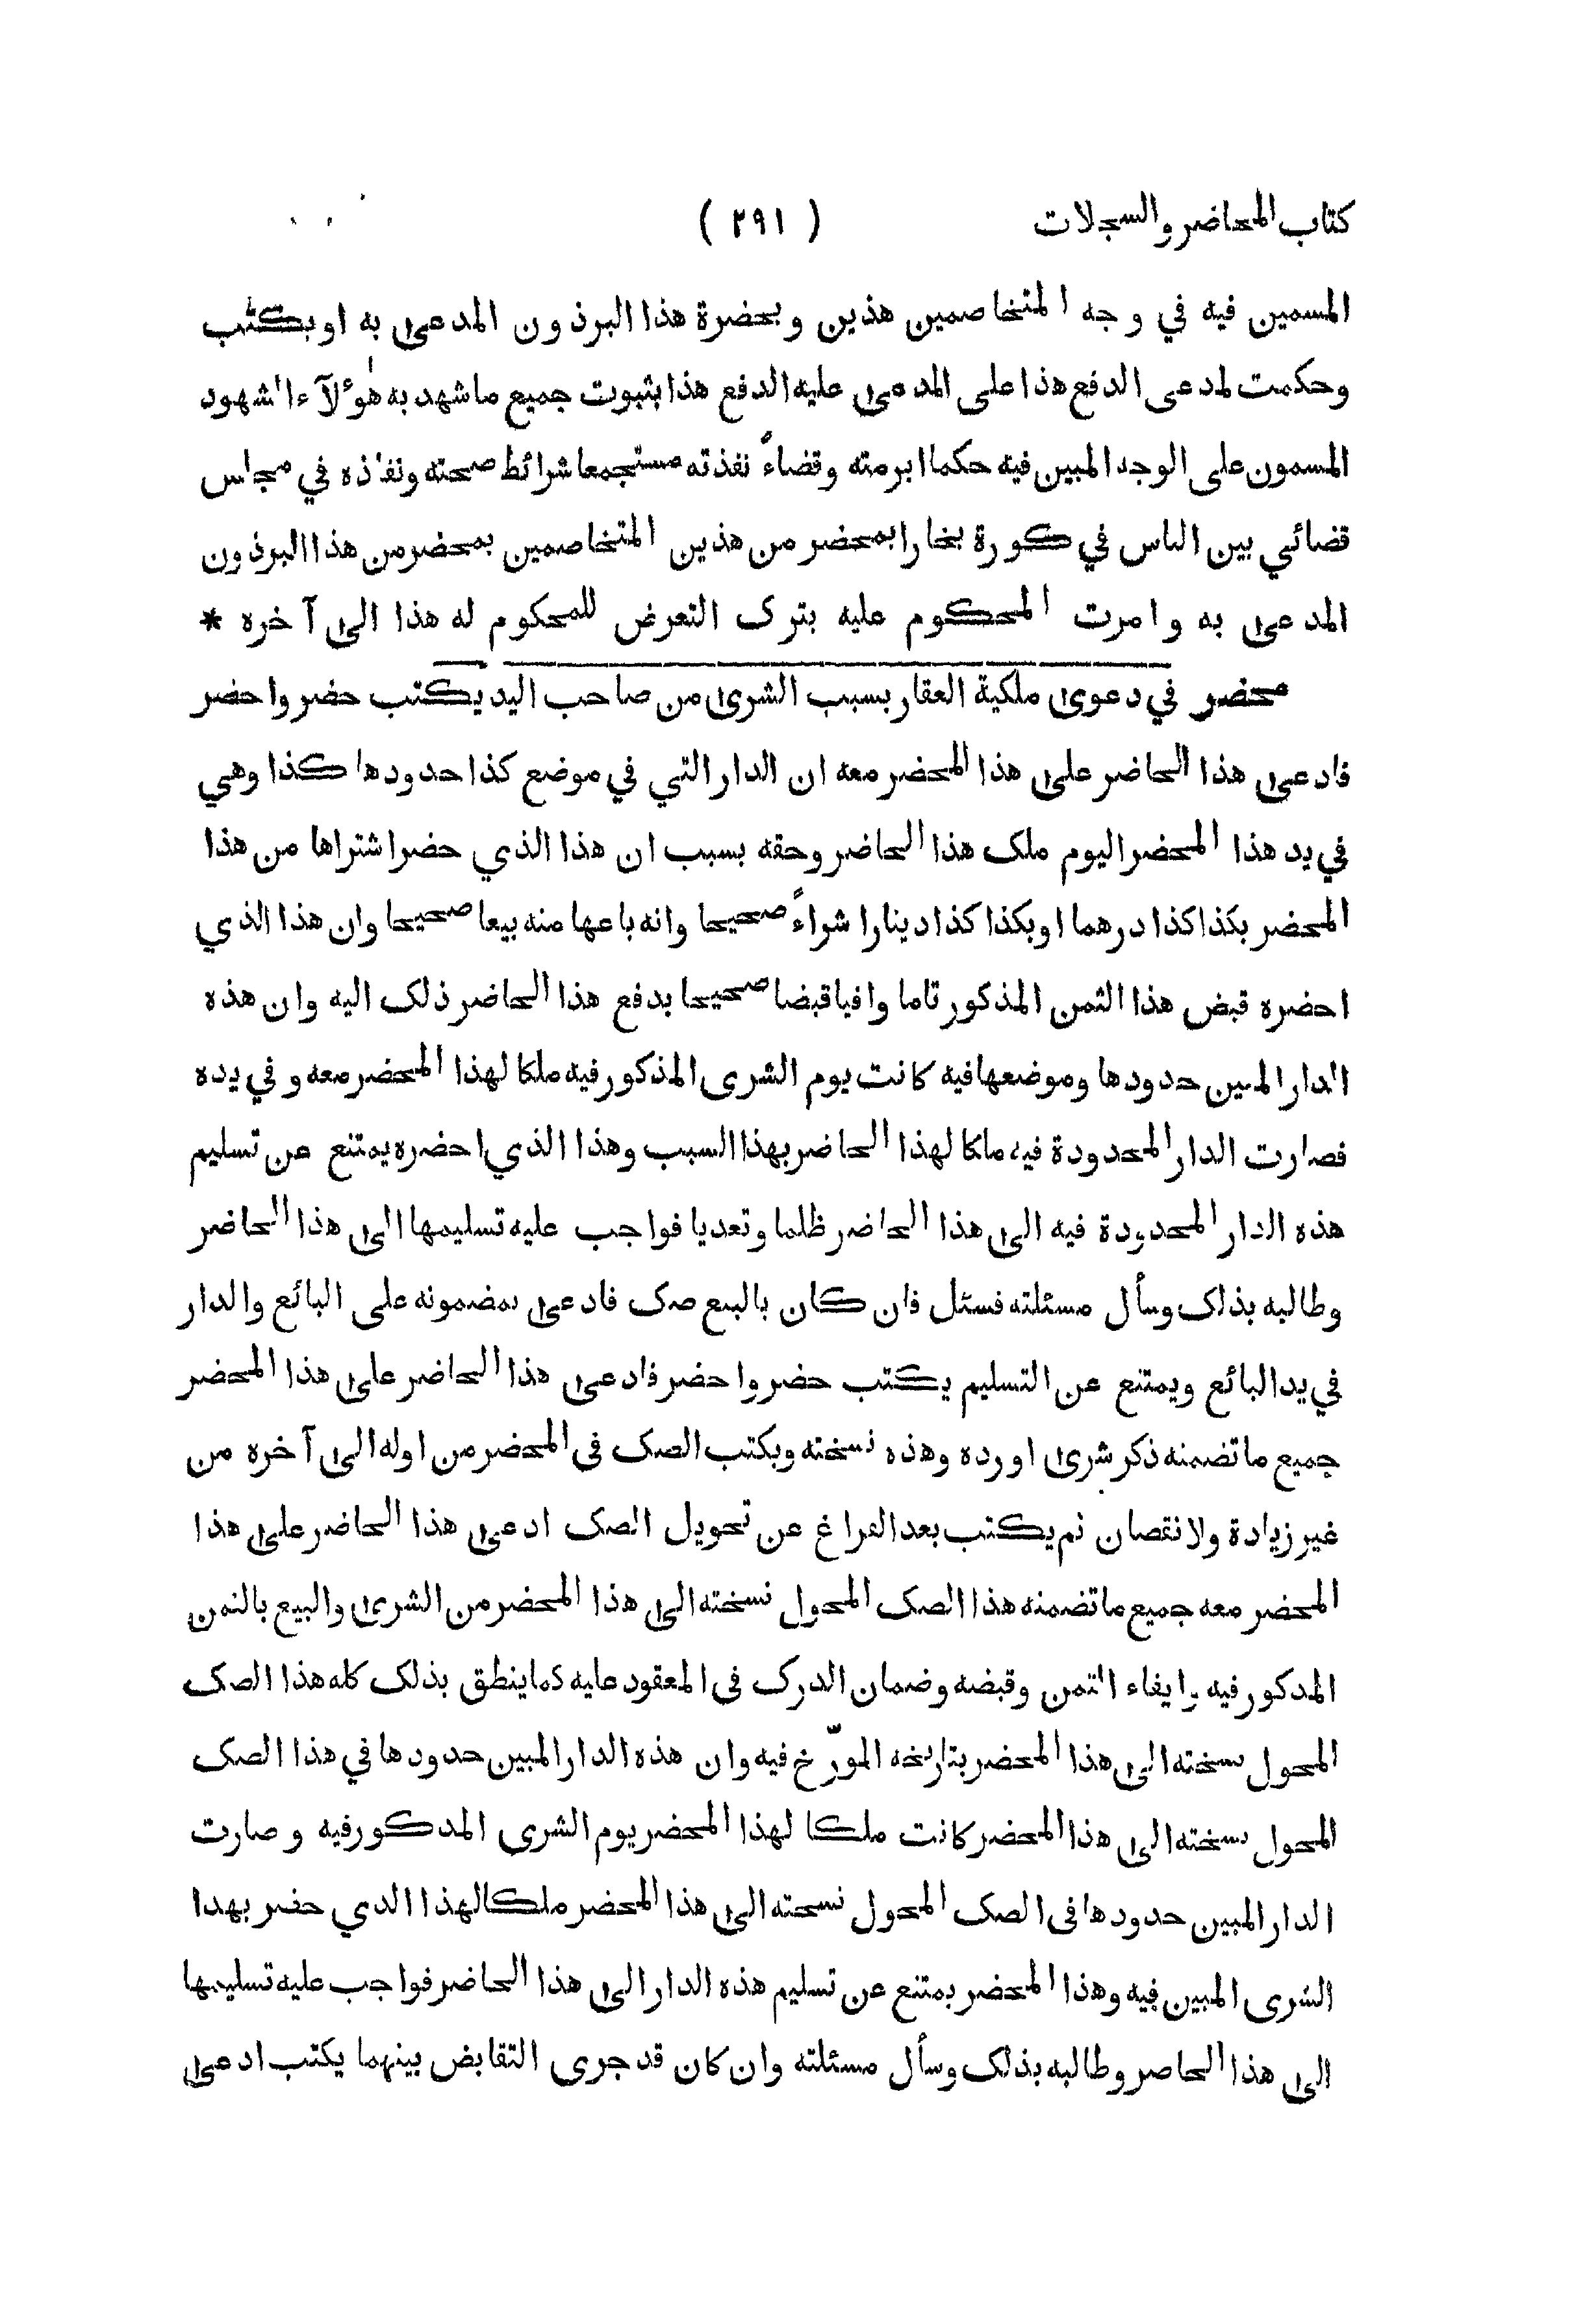 كتاب المحاضر والسجلات ( ٢٩١ )
المسمين فيه في وجه المتخاصمين هذين وبحضرة هذا البرذون المدعى به اويكتب
وحكمت لمدعى الدفع هذا على المدعى عليه الدفع هذا بثبوت جميع ماشهد به هٰؤلآء الشهود
المسمون على الوجه المبين فيه حكما ابرمته وقضاءً نفذته مستجمعا شرائط صحته ونفاذه في مجلس
قضائي بين الناس في كورة بخارا بمحضر من هذين المتخاصمين بمحضر من هذا البرذون
المدعى به وامرت المحكوم عليه بترك التعرض للمحكوم له هذا الى آخره *
محضر في دعوى ملكية العقار بسبب الشرى من صاحب اليد يكتب حضر واحضر
فادعى هذا الحاضر على هذا المحضر معه ان الدار التي في موضع كذا حدودها كذا وهي
في يد هذا المحضر اليوم ملك هذا الحاضر وحقه بسبب ان هذا الذي حضر اشتراها من هذا
المحضر بكذا كذا درهما اوبكذا كذا دينارا شراءً صحيحا وانه باعها منه بيعا صحيحا وان هذا الذي
احضره قبض هذا الثمن المذكور تاما وافيا قبضا صحيحا بدفع هذا الحاضر ذلك اليه وان هذه
الدار المبين حدودها وموضعها فيه كانت يوم الشرى المذكور فيه ملكا لهذا المحضر معه وفي يده
فصارت الدار المحدودة فيه ملكا لهذا الحاضر بهذا السبب وهذا الذي احضره يمتنع عن تسليم
هذه الدار المحدودة فيه الى هذا الحاضر ظلما وتعديا فواجب عليه تسليمها الى هذا الحاضر
وطالبه بذلك وسأل مسئلته فسئل فان كان بالبيع صك فادعى بمضمونه على البائع والدار
في يد البائع ويمتنع عن التسليم يكتب حضر واحضر فادعى هذا الحاضر على هذا المحضر
جميع ماتضمنه ذكر شرى اورده وهذه نسخته ويكتب الصك فى المحضر من اوله الى آخره من
غير زيادة ولا نقصان ثم يكتب بعد الفراغ عن تحويل الصك ادعى هذا الحاضر على هذا
المحضر معه جميع ماتضمنه هذا الصك المحول نسخته الى هذا المحضر من الشرى والبيع بالثمن
المذكور فيه وايفاء الثمن وقبضه وضمان الدرك فى المعقود عليه كما ينطق بذلك كله هذا الصك
المحول نسخته الى هذا المحضر بتاريخه المورّخ فيه وان هذه الدار المبين حدودها في هذا الصك
المحول نسخته الى هذا المحضر كانت ملكا لهذا المحضر يوم الشرى المذكور فيه وصارت
الدار المبين حدودها فى الصك المحول نسخته الى هذا المحضر ملكا لهذا الذي حضر بهذا
الشرى المبين فيه وهذا المحضر يمتنع عن تسليم هذه الدار الى هذا الحاضر فواجب عليه تسليمها
الى هذا الحاضر وطالبه بذلك وسأل مسئلته وان كان قد جرى التقابض بينهما يكتب ادعى